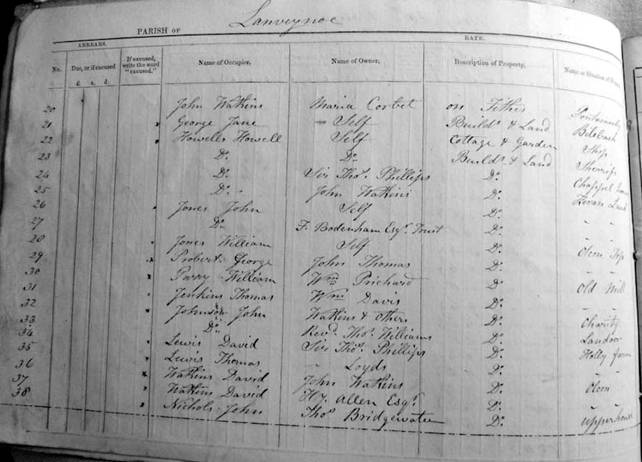 PARISH OF Lanveynoe
ARREARS. RATE.
No. Due, or if excused If excused, write the word "excused." Name of Occupier. Name of Owner. Description of Property. Name or Situation of
£. s. d.
20 John Watkins Maria Corbet on Tithes
21 George Jane Self Builds. & Land
22 Howells Howell Self Cottage & Garden
23 Do. Do. Builds. & Land
24 Do. Sir Thos. Phillips Do.
25 Do. John Watkins Do.
26 Jones John Self Do.
27 Do. F. Bodenham Esqr. Trust Do.
28 Jones William Self Do.
29 Probert George John Thomas Do.
30 Parry William Wm. Prichard Do. Old Mill
31 Jenkins Thomas Wm. Davis Do.
32 Johnson John Watkins & Others Do. Charity
33 Do. Revd. Thos. Williams Do.
34 Lewis David Sir Thos. Phillips Do. Holly farm
35 Lewis Thomas Loyds Do.
36 Watkins David John Watkins Do.
37 Watkins David Hy. Allen Esqr. Do.
38 Nichols John Thos. Bridgewater Do. Upper house